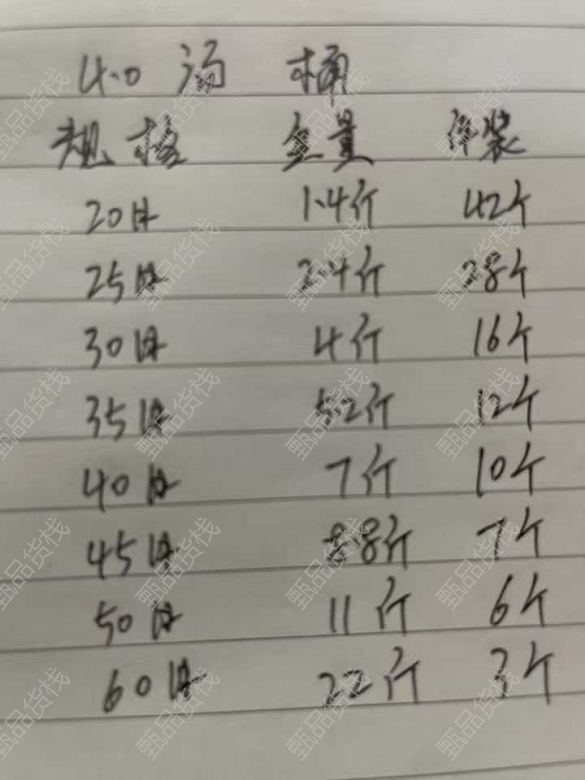 4.0 汤 桶
规格 重量 件装
20本 1.4斤 42个
25本 2.4斤 28个
30本 4斤 16个
35本 5.2斤 12个
40本 7斤 10个
45本 8.8斤 7个
50本 11斤 6个
60本 22斤 3个
甄品货栈